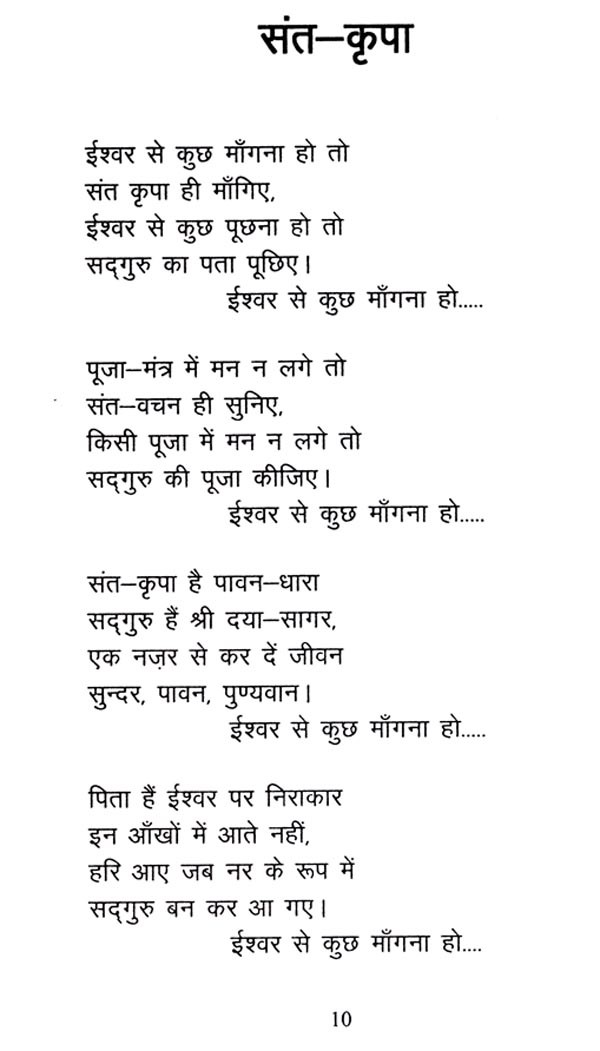 संत–कृपा
ईश्वर से कुछ माँगना हो तो
संत कृपा ही माँगिए,
ईश्वर से कुछ पूछना हो तो
सद्‌गुरु का पता पूछिए।
ईश्वर से कुछ माँगना हो.....
पूजा–मंत्र में मन न लगे तो
संत–वचन ही सुनिए,
किसी पूजा में मन न लगे तो
सद्‌गुरु की पूजा कीजिए।
ईश्वर से कुछ माँगना हो.....
संत–कृपा है पावन–धारा
सद्‌गुरु हैं श्री दया–सागर,
एक नज़र से कर दें जीवन
सुन्दर, पावन, पुण्यवान।
ईश्वर से कुछ माँगना हो.....
पिता हैं ईश्वर पर निराकार
इन आँखों में आते नहीं,
हरि आए जब नर के रूप में
सद्‌गुरु बन कर आ गए।
ईश्वर से कुछ माँगना हो....
10